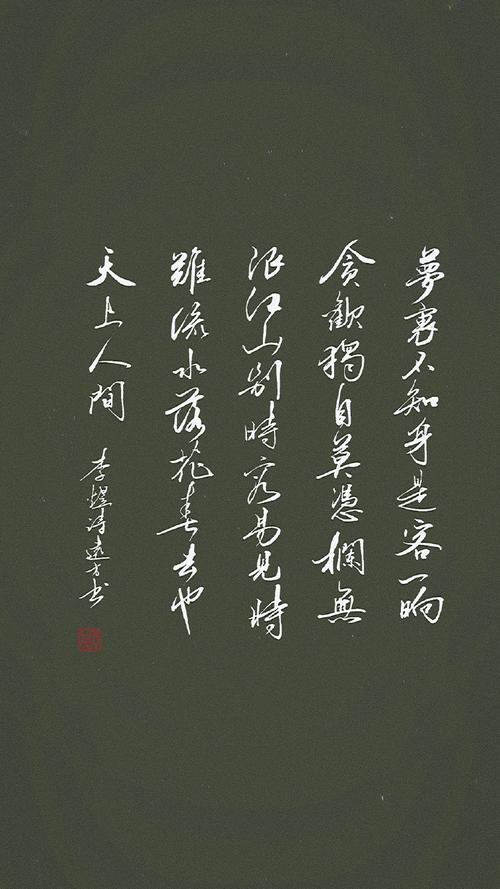 夢裏不知身是客一晌
貪歡獨自莫憑欄無
限江山别時容易見時
難流水落花春去也
天上人間 李煜詩遠方书